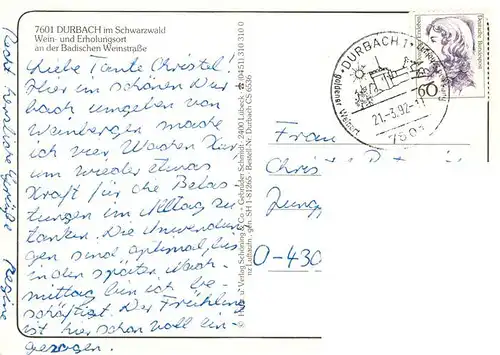 7601 DURBACH im Schwarzwald
Wein- und Erholungsort
an der Badischen Weinstraße
Liebe Tante Christel!
Hier im schönen Dur
bach umgeben von
Weinbergen mache
ich vier Wochen Kur,
um wieder etwas
Kraft für die Belas
tungen im Alltag zu
tanken. Die Anwendun
gen sind optimal, bis
in den späten Nach-
mittag bin ich be-
schäftigt. Der Frühling
ist hier schon voll ein-
gezogen.
Recht herzliche Grüße Regine
Verlag Schöning & Co · Gebrüder Schmidt · 2400 Lübeck · (0451) 310 310 0
SH 1-81265 · Bestell-Nr. Durbach CS 6536
DURBACH 1
goldener Weinort
21.-3.92
7601
60
Deutsche Bundespost
Frau
Chris
Jung
O-430